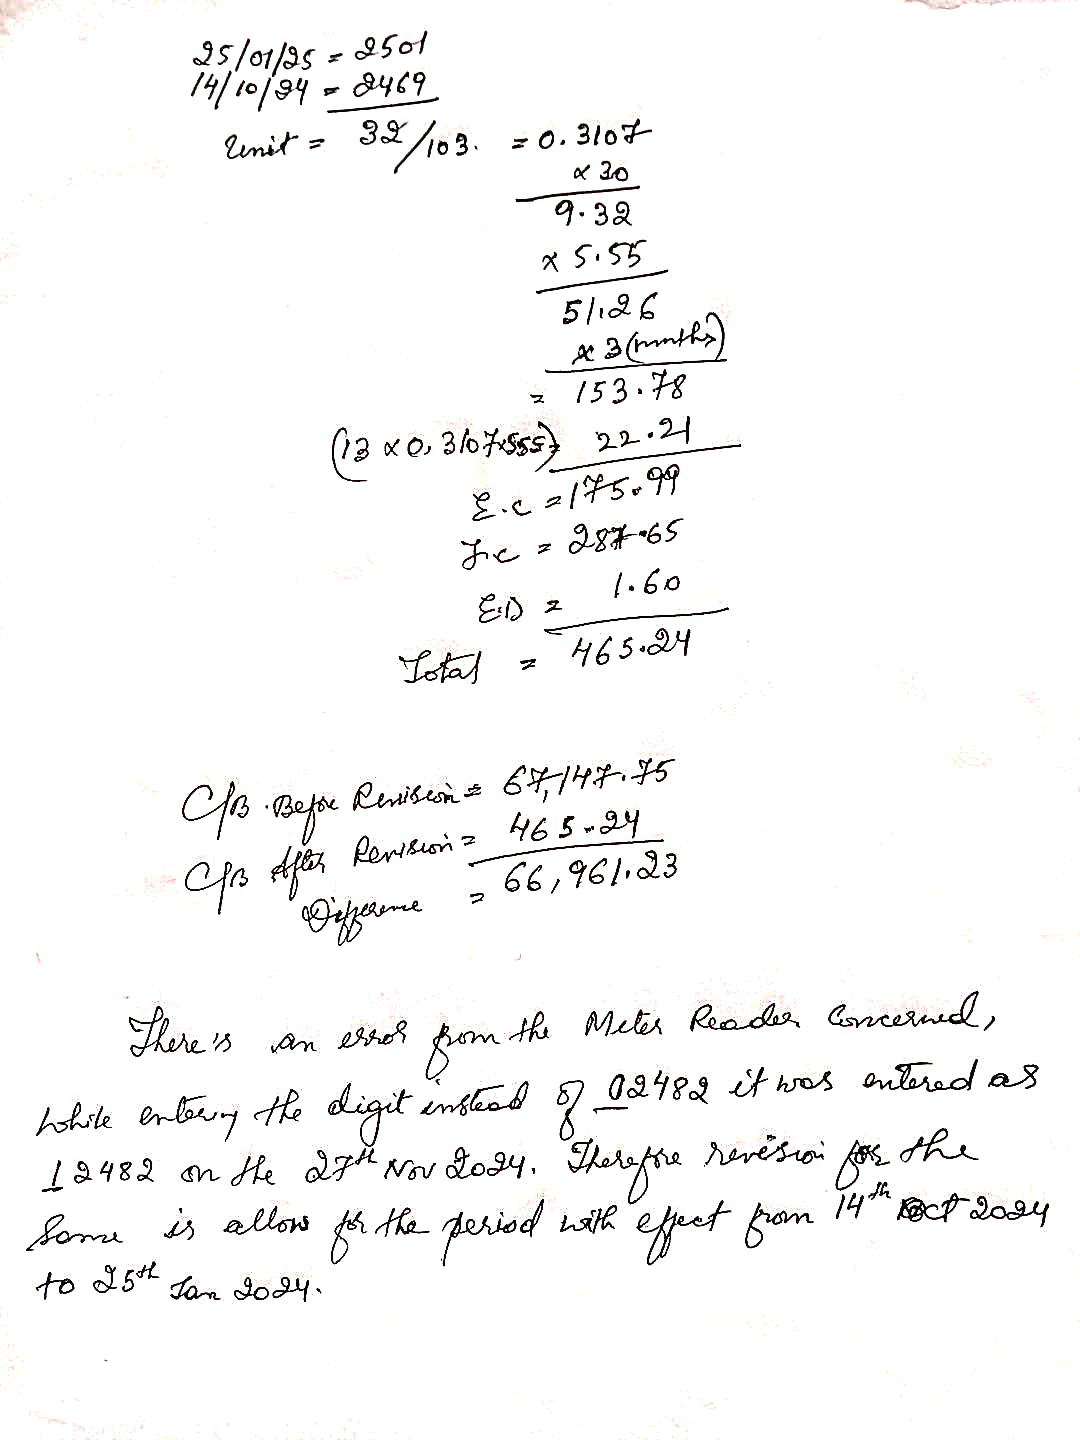 25/01/25 = 2501
14/10/24 = 2469
Unit = 32/103. = 0.3107
x 30
9.32
x 5.55
51.26
x 3 (months)
= 153.78
(13 x 0.3107x555) = 22.21
E.C = 175.99
F.C = 287.65
E.D = 1.60
Total = 465.24
C/B Before Revision = 67,147.75
C/B After Revision = 465.24
Difference = 66,961.23
There is an error from the Meter Reader Concerned,
while entering the digit instead of 02482 it was entered as
12482 on the 27th Nov 2024. Therefore revision for the
Same is allow for the period with effect from 14th Oct 2024
to 25th Jan 2024.